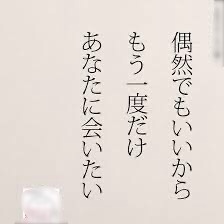 偶然でもいいから
もう一度だけ
あなたに会いたい